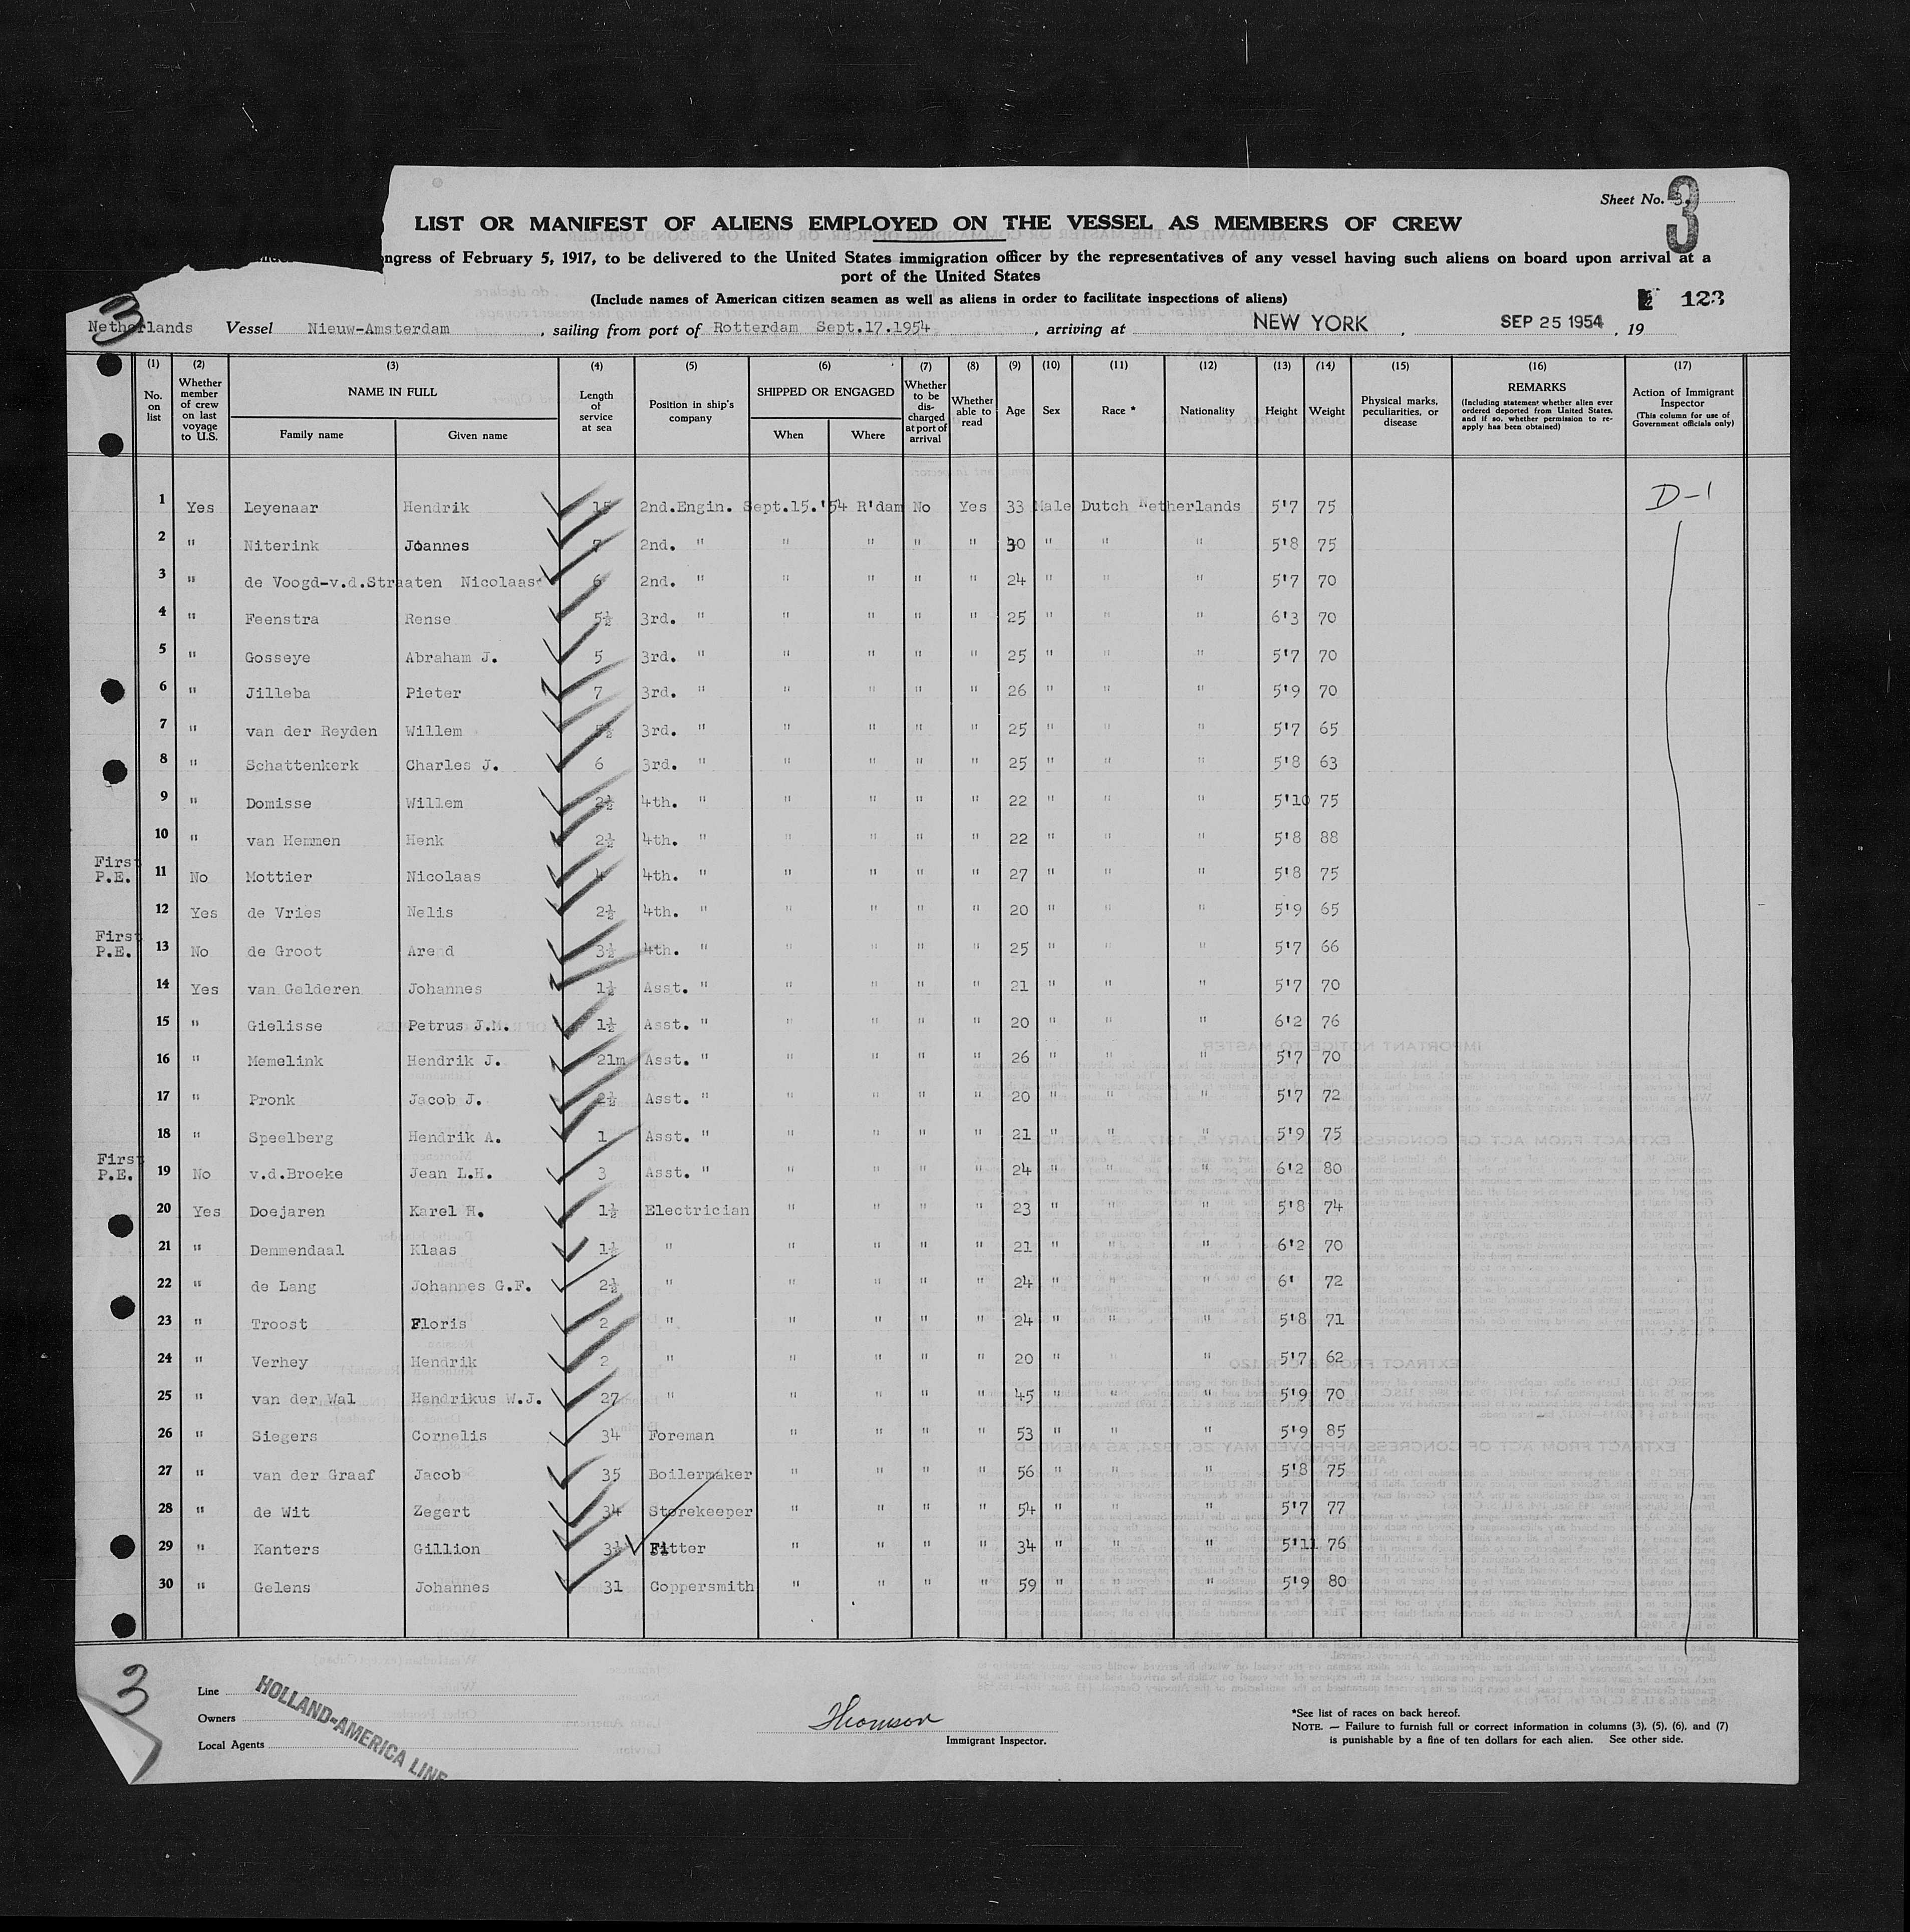 Sheet No. 3.
3
LIST OR MANIFEST OF ALIENS EMPLOYED ON THE VESSEL AS MEMBERS OF CREW
ongress of February 5, 1917, to be delivered to the United States immigration officer by the representatives of any vessel having such aliens on board upon arrival at a
port of the United States
(Include names of American citizen seamen as well as aliens in order to facilitate inspections of aliens)
3
123
Netherlands Vessel Nieuw-Amsterdam , sailing from port of Rotterdam Sept.17.1954 , arriving at NEW YORK , SEP 25 1954 , 19
(1) (2) (3) (4) (5) (6) (7) (8) (9) (10) (11) (12) (13) (14) (15) (16) (17)
No. on list
Whether member of crew on last voyage to U.S.
NAME IN FULL
Family name Given name
Length of service at sea
Position in ship's company
SHIPPED OR ENGAGED
When Where
Whether to be discharged at port of arrival
Whether able to read
Age Sex Race * Nationality Height Weight
Physical marks, peculiarities, or disease
REMARKS
(Including statement whether alien ever ordered deported from United States, and if so, whether permission to reapply has been obtained)
Action of Immigrant Inspector
(This column for use of Government officials only)
1 Yes Leyenaar Hendrik 15 2nd.Engin. Sept.15.'54 R'dam No Yes 33 Male Dutch Netherlands 5'7 75 D-1
2 " Niterink Joannes 7 2nd. " " " " " 30 " " " 5'8 75
3 " de Voogd-v.d.Straaten Nicolaas 6 2nd. " " " " " 24 " " " 5'7 70
4 " Feenstra Rense 5½ 3rd. " " " " " 25 " " " 6'3 70
5 " Gosseye Abraham J. 5 3rd. " " " " " 25 " " " 5'7 70
6 " Jilleba Pieter 7 3rd. " " " " " 26 " " " 5'9 70
7 " van der Reyden Willem 5½ 3rd. " " " " " 25 " " " 5'7 65
8 " Schattenkerk Charles J. 6 3rd. " " " " " 25 " " " 5'8 63
9 " Domisse Willem 2½ 4th. " " " " " 22 " " " 5'10 75
10 " van Hemmen Henk 2½ 4th. " " " " " 22 " " " 5'8 88
First P.E. 11 No Mottier Nicolaas 4 4th. " " " " " 27 " " " 5'8 75
12 Yes de Vries Nelis 2½ 4th. " " " " " 20 " " " 5'9 65
First P.E. 13 No de Groot Are d 3½ 4th. " " " " " 25 " " " 5'7 66
14 Yes van Gelderen Johannes 1½ Asst. " " " " " 21 " " " 5'7 70
15 " Gielisse Petrus J.M. 1½ Asst. " " " " " 20 " " " 6'2 76
16 " Memelink Hendrik J. 21m Asst. " " " " " 26 " " " 5'7 70
17 " Pronk Jacob J. 2½ Asst. " " " " " 20 " " " 5'7 72
18 " Speelberg Hendrik A. 1 Asst. " " " " " 21 " " " 5'9 75
First P.E. 19 No v.d.Broeke Jean L.H. 3 Asst. " " " " " 24 " " " 6'2 80
20 Yes Doejaren Karel H. 1½ Electrician " " " " 23 " " " 5'8 74
21 " Demmendaal Klaas 1½ " " " " " 21 " " " 6'2 70
22 " de Lang Johannes G.F. 2½ " " " " " 24 " " " 6' 72
23 " Troost Floris 2 " " " " " 24 " " " 5'8 71
24 " Verhey Hendrik 2 " " " " " 20 " " " 5'7 62
25 " van der Wal Hendrikus W.J. 27 " " " " " 45 " " " 5'9 70
26 " Siegers Cornelis 34 Foreman " " " " 53 " " " 5'9 85
27 " van der Graaf Jacob 35 Boilermaker " " " " 56 " " " 5'8 75
28 " de Wit Zegert 34 Storekeeper " " " " 54 " " " 5'7 77
29 " Kanters Gillion 3½ Fitter " " " " 34 " " " 5'11 76
30 " Gelens Johannes 31 Coppersmith " " " " 59 " " " 5'9 80
3
Line
Owners
Local Agents
HOLLAND-AMERICA LINE
Thomson
Immigrant Inspector.
*See list of races on back hereof.
NOTE. — Failure to furnish full or correct information in columns (3), (5), (6), and (7)
is punishable by a fine of ten dollars for each alien. See other side.